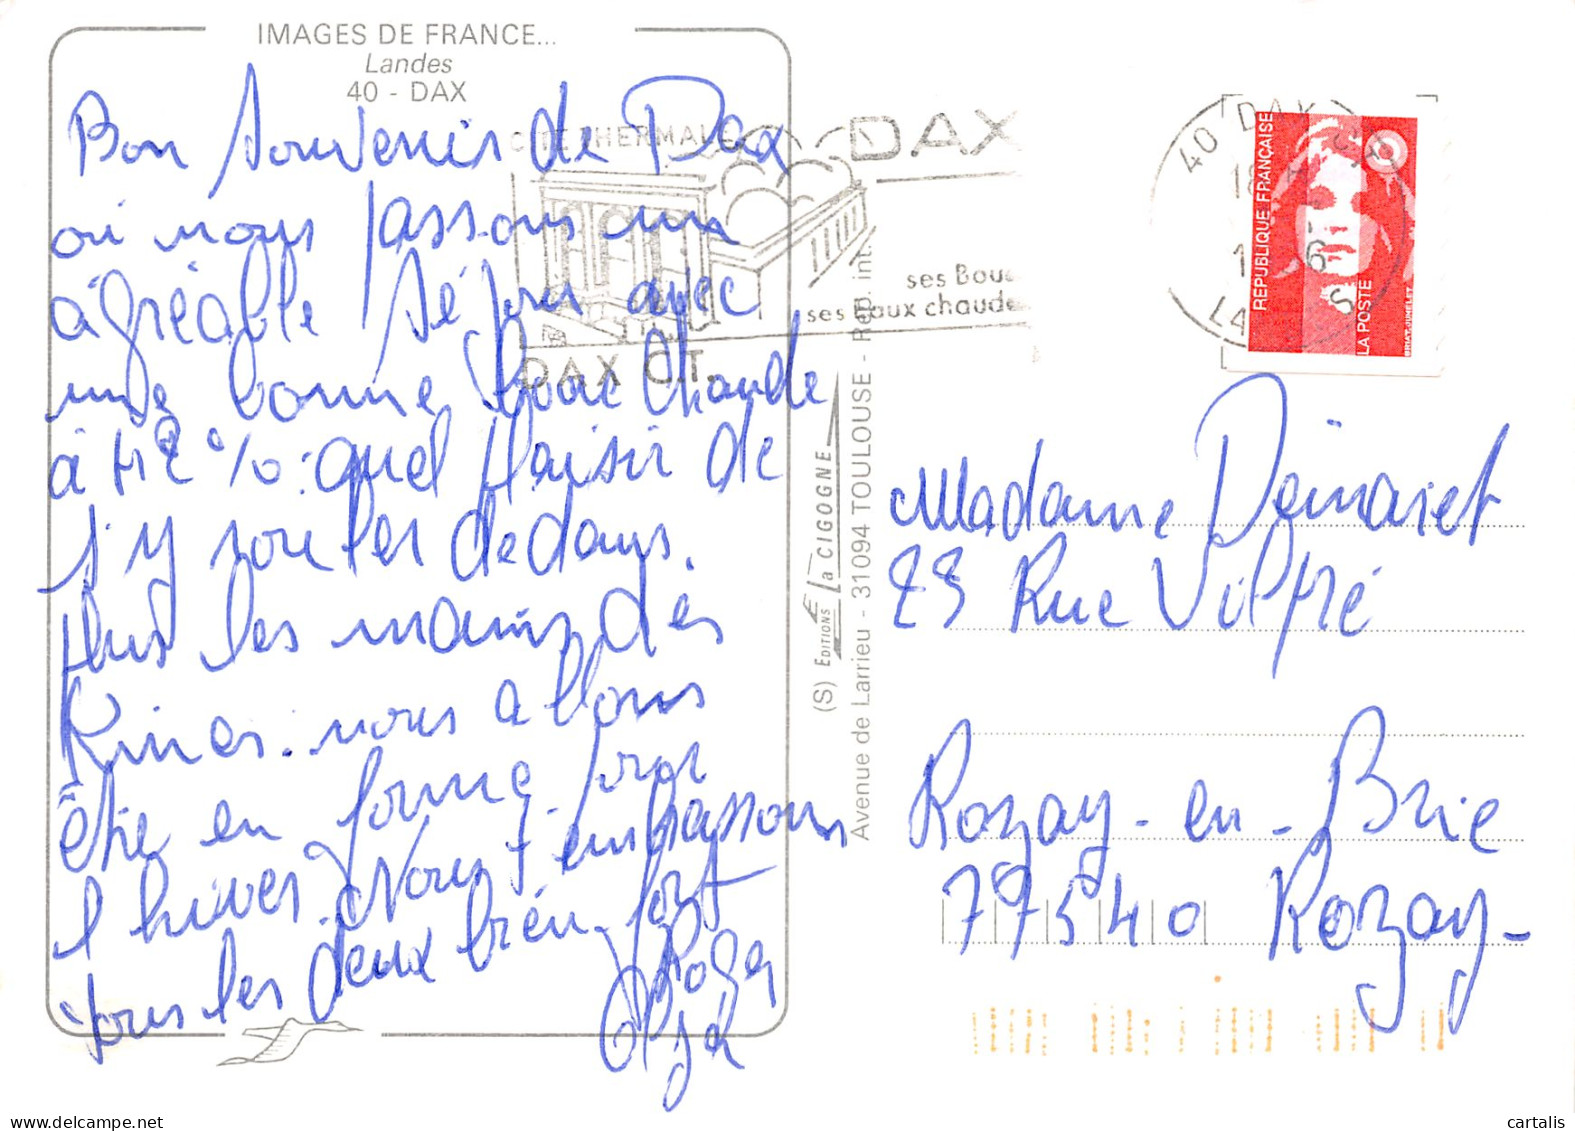 IMAGES DE FRANCE...
Landes
40 - DAX
Bon Souvenir de Dax
où nous passons un
agréable séjour avec
une bonne boue chaude
à 42 % : quel plaisir de
s'y rouler dedans.
Plus les mains des
Kinés. nous allons
être en forme pour
l'hiver. Nous t'embrassons
tous les deux bien fort
Roger
Olga
CITE THERMALE
DAX
ses Boue
ses Eaux chaude
DAX C.T.
(S) EDITIONS La CIGOGNE
Avenue de Larrieu - 31094 TOULOUSE - Rep. int.
40 DAX
LA S
REPUBLIQUE FRANÇAISE
LA POSTE
BRIAT-JUMELET
Madame
23 Rue
Rozay-en-Brie
77540 Rozay-
cartalis
www.delcampe.net